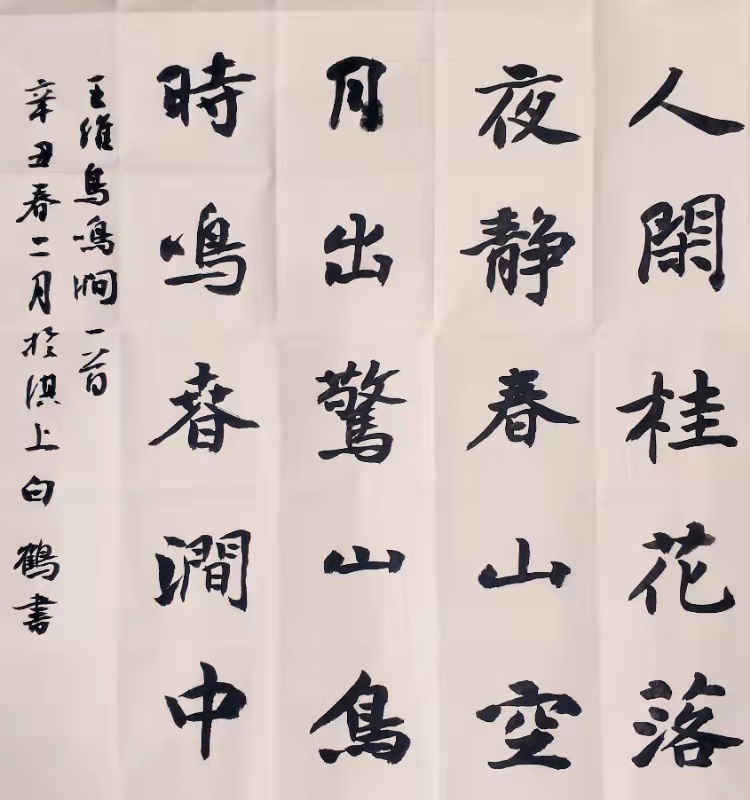 人閑桂花落
夜静春山空
月出驚山鳥
時鳴春澗中
王維鳥鳴澗一首
辛丑春二月於淇上白鶴書